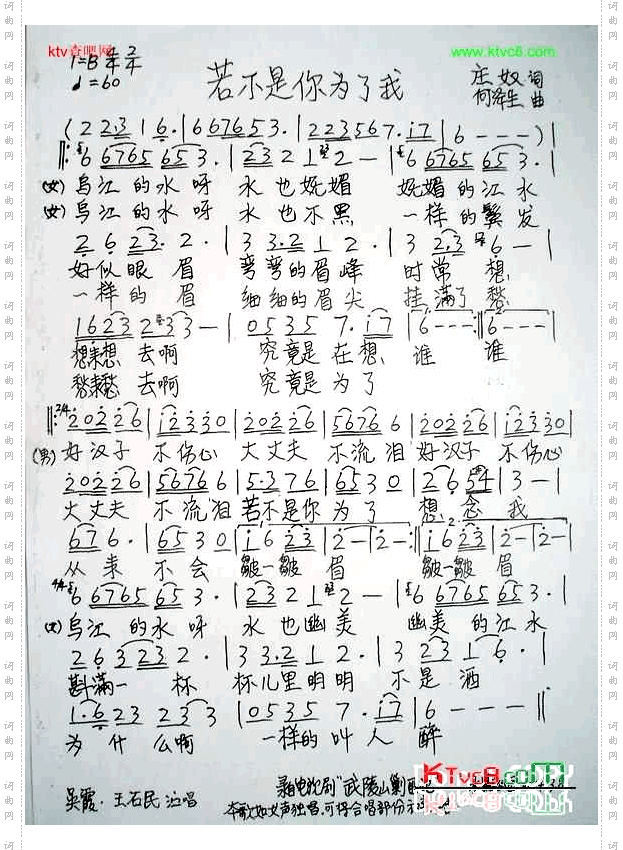 ktv查吧网
www.ktvc8.com
1=B 4/4 2/4
♩=60
若不是你为了我
庄奴 词
何泽生 曲
(2 2·3 1 6·|6 6765 3·|2 2 3 5 6 7·i7|6 - - -)|
6 6765 65 3·|23 2 1 2 -|6 6765 65 3·|
(女) 乌江的水呀 水也妩媚 妩媚的江水
(女) 乌江的水呀 水也不黑 一样的鬓发
2 6 23· 2·|3 3·2 1 2·|3 2·3 6 -|
好似眼眉 弯弯的眉峰 时常想
一样的眉 细细的眉尖 挂满了愁
1623 2 3 3 -|0535 7·i7|6 - - -:‖6 - - -|
想来想去啊 究竟是在想谁 谁
愁来愁去啊 究竟是为了
‖:2/4 202 26|i2330|202 26|5676 6|202 26|i2330|
(男) 好汉子 不伤心 大丈夫 不流泪 好汉子 不伤心
202 26|5676 6|5·3 7 6|65 3 0|2 6 54|3 -|
大丈夫 不流泪 若不是你为了想念我
676·|65 3 0|i 6 23|2 -|2 -:‖i 6 23|2 -|2 -|
从来不会 皱一皱眉 皱一皱眉
4/4 6 6765 65 3·|23 2 1 2 -|6 6765 65 3·|
(女) 乌江的水呀 水也幽美 幽美的江水
2 6 3 23 2·|3 3·2 1 2·|3 23 1 6·|
斟满一杯 杯儿里明明 不是酒
1·6 23 2 3 3|0535 7·i7|6 - - -‖
为什么啊 一样的叫人醉
KTvc8.com
吴霞·王石民 演唱
录自电视剧"武陵山剿匪记
本歌如女声独唱,可将合唱部份
词曲网